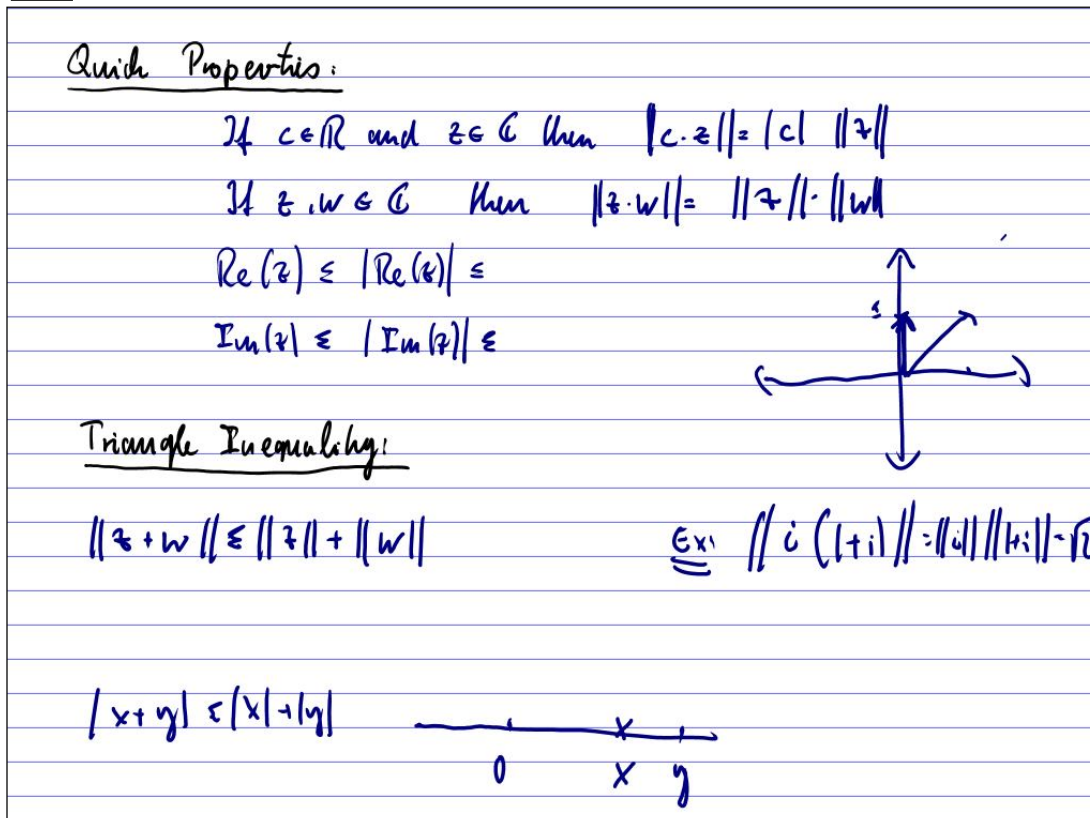 Quick Properties:
If c ∈ ℝ and z ∈ ℂ then ||c·z|| = |c| ||z||
If z, w ∈ ℂ then ||z·w|| = ||z||·||w||
Re(z) ≤ |Re(z)| ≤
Im(z) ≤ |Im(z)| ≤
Triangle Inequality:
||z+w|| ≤ ||z|| + ||w|| Ex: ||i(1+i)|| = ||i|| ||1+i|| = √2
|x+y| ≤ |x|+|y|
0 x y